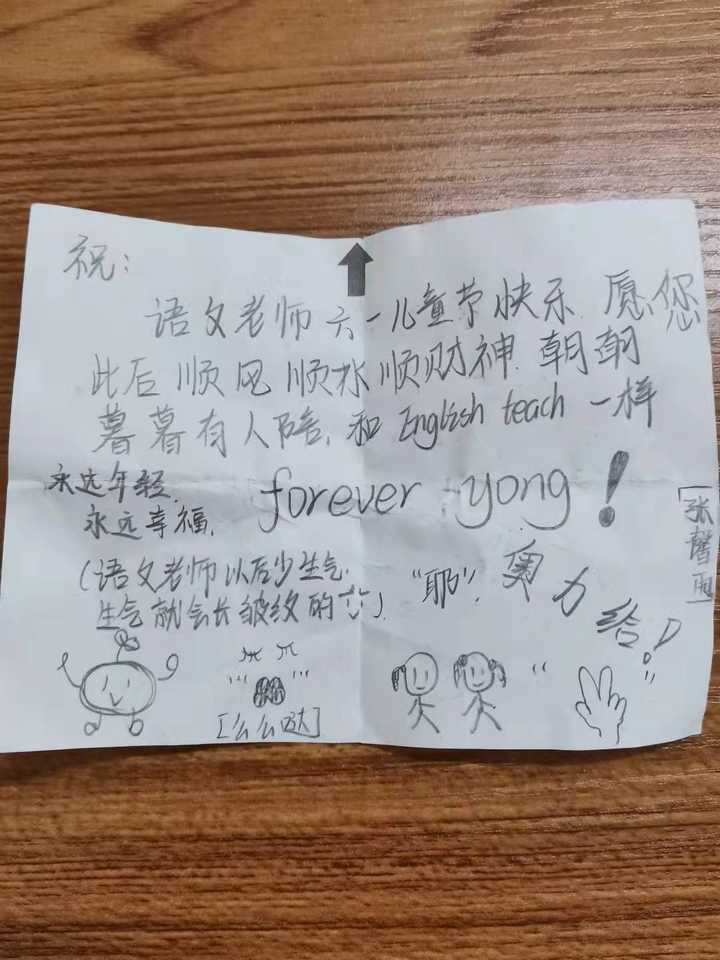 祝:
语文老师六一儿童节快乐 愿您
此后顺风顺水顺财神 朝朝
暮暮有人陪,和 English teach 一样
永远年轻, forever yong!
永远幸福,
(语文老师以后少生气,
生气就会长皱纹的)
"耶"! 奥力给!
[张馨雨]
[么么哒]